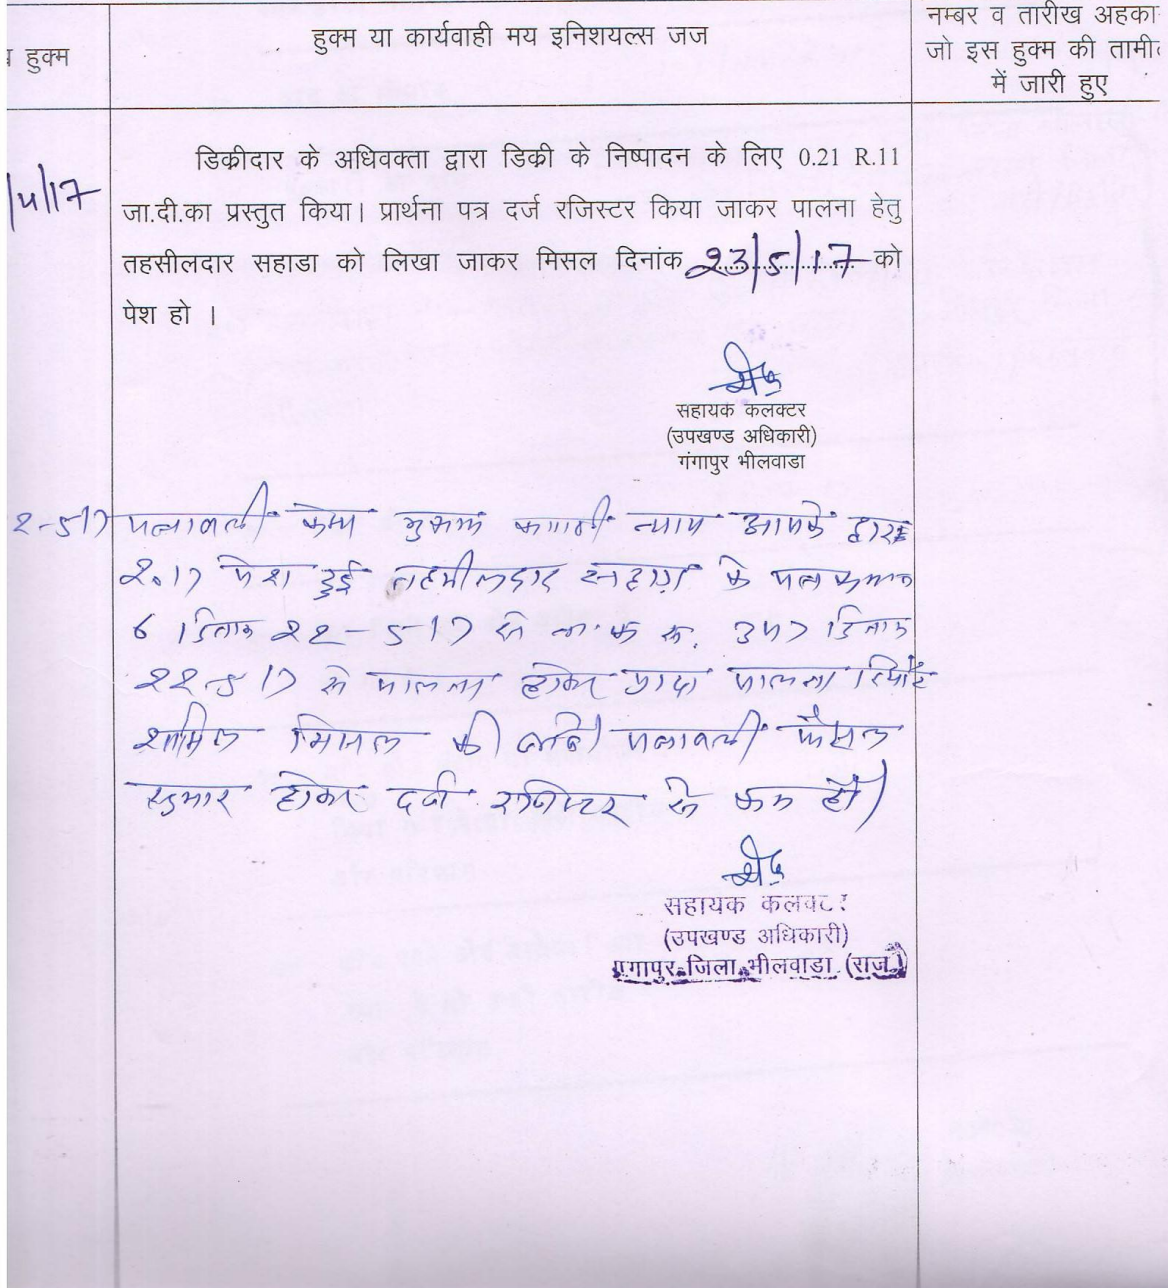 हुक्म
हुक्म या कार्यवाही मय इनिशयल्स जज
नम्बर व तारीख अहका
जो इस हुक्म की तामी
में जारी हुए
/4/17
डिक्रीदार के अधिवक्ता द्वारा डिक्री के निष्पादन के लिए 0.21 R.11
जा.दी.का प्रस्तुत किया। प्रार्थना पत्र दर्ज रजिस्टर किया जाकर पालना हेतु
तहसीलदार सहाडा को लिखा जाकर मिसल दिनांक 23/5/17 को
पेश हो ।
सहायक कलक्टर
(उपखण्ड अधिकारी)
गंगापुर भीलवाडा
2-517 पत्रावली केम्प मुकाम न्याय आपके द्वार
2017 पेश हुई तहसीलदार सहाड़ा के पत्र क्रमांक
6 दिनांक 22-5-17 से 347 दिनांक
22-5-17 से पालना होकर प्राप्त पालना रिपोर्ट
शामिल मिसल की जावे। पत्रावली फैसल
सुमार होकर दर्ज रजिस्टर से कम हो।
सहायक कलक्टर
(उपखण्ड अधिकारी)
गंगापुर जिला भीलवाडा (राज.)